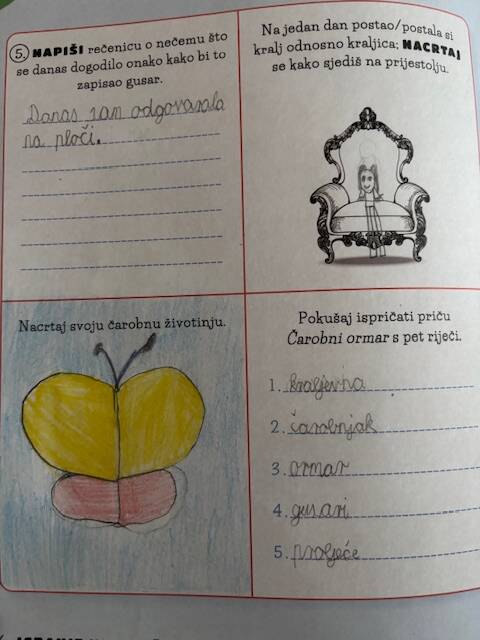 5. NAPIŠI rečenicu o nečemu što
se danas dogodilo onako kako bi to
zapisao gusar.
Danas sam odgovarala
na ploči.
Na jedan dan postao/postala si
kralj odnosno kraljica; NACRTAJ
se kako sjediš na prijestolju.
Nacrtaj svoju čarobnu životinju.
Pokušaj ispričati priču
Čarobni ormar s pet riječi.
1. kraljevna
2. čarobnjak
3. ormar
4. gusari
5. proljeće